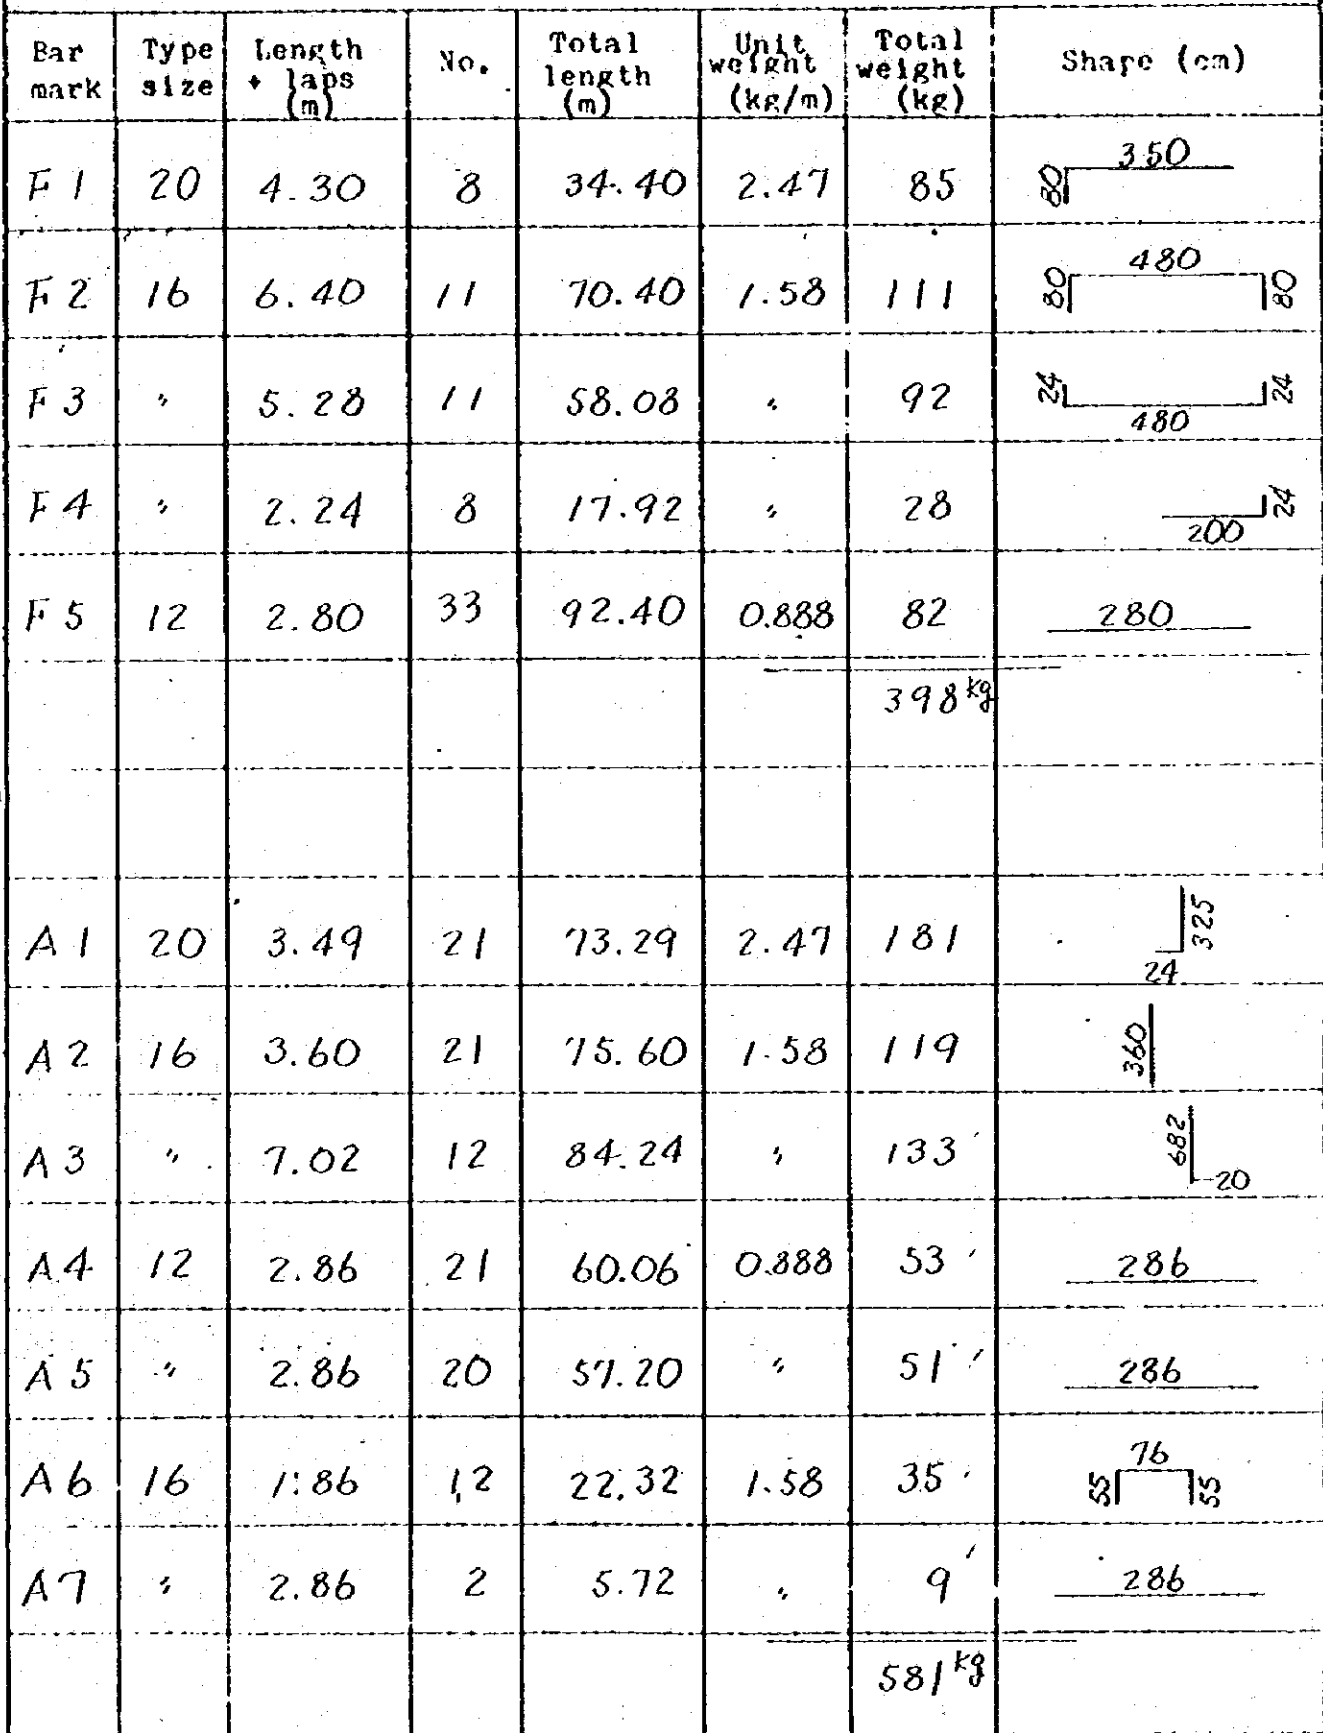 Bar mark Type size Length + laps (m) No. Total length (m) Unit weight (kg/m) Total weight (kg) Shape (cm)
F 1 20 4.30 8 34.40 2.47 85 80 350
F 2 16 6.40 11 70.40 1.58 111 80 480 80
F 3 〃 5.28 11 58.08 〃 92 24 480 24
F 4 〃 2.24 8 17.92 〃 28 200 24
F 5 12 2.80 33 92.40 0.888 82 280
398 kg
A 1 20 3.49 21 73.29 2.47 181 24 325
A 2 16 3.60 21 75.60 1.58 119 360
A 3 〃 7.02 12 84.24 〃 133 682 20
A 4 12 2.86 21 60.06 0.888 53 286
A 5 〃 2.86 20 57.20 〃 51 286
A 6 16 1.86 12 22.32 1.58 35 55 76 55
A 7 〃 2.86 2 5.72 〃 9 286
581 kg